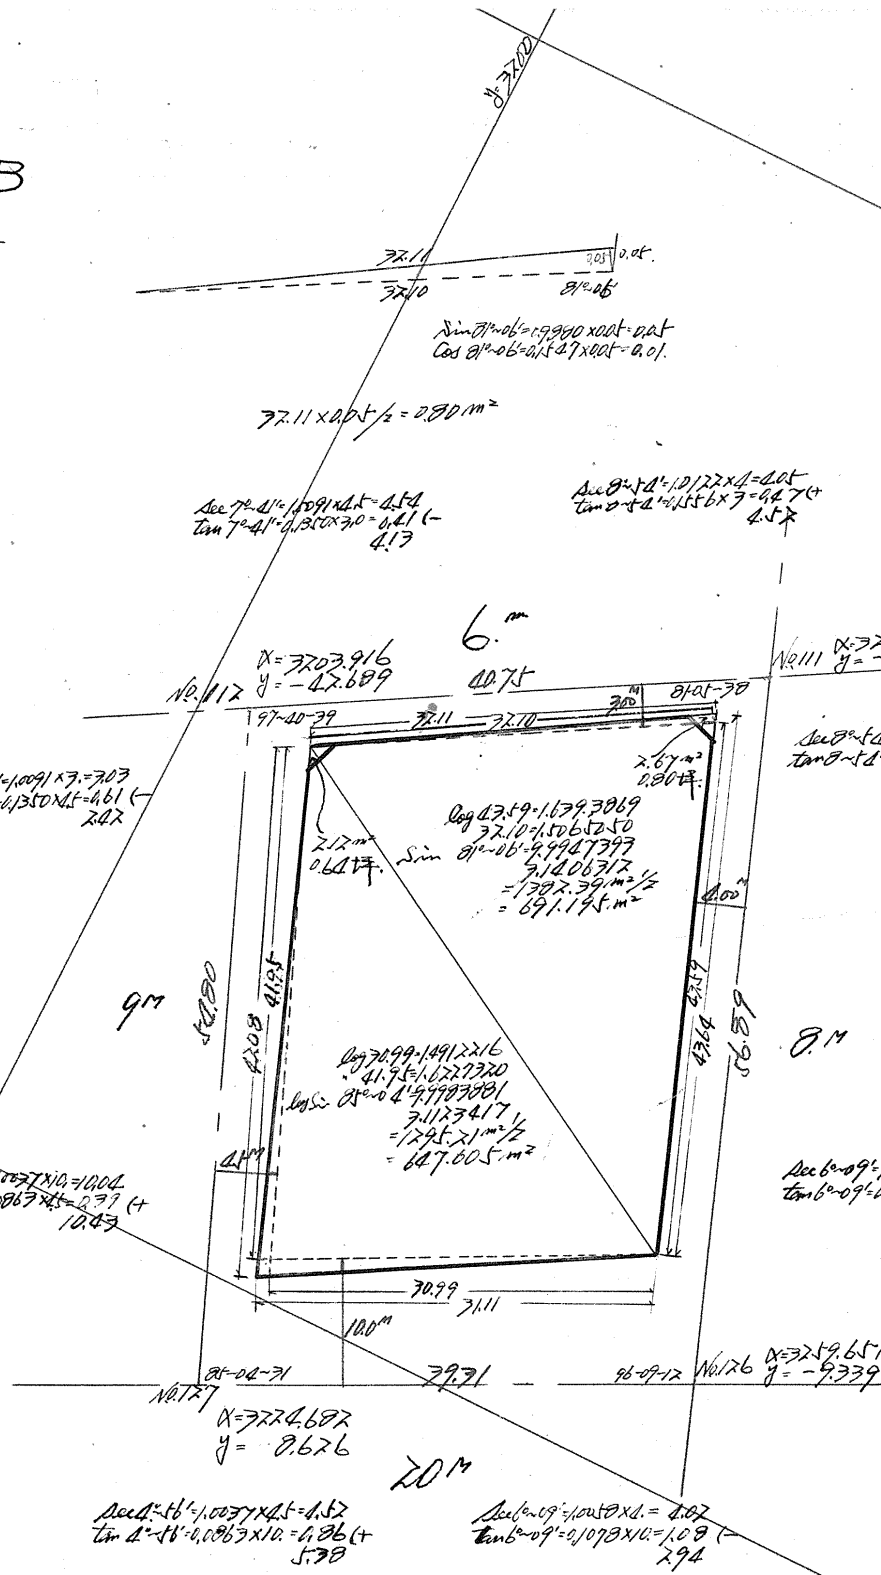 B
y=3200
32.11
0.05
0.05.
32.10
81°~06'
Sin 81°~06'=0.9880×0.05=0.05
Cos 81°~06'=0.1547×0.05=0.01.
32.11×0.05/2=0.80m²
Sec 7°~41'=1.0091×4.5=4.54
tan 7°~41'=0.1350×3.0=0.41(-
4.13
Sec 8°~54'=1.0122×4=4.05
tan 8°~54'=0.1556×3=0.47(+
4.52
6.m
x=3203.916
y=-42.689
No.112
40.75
No.111
97-40-39
32.11
32.10
3.00M
81-05-38
=1.0091×3.=3.03
0.1350×4.5=0.61(-
2.42
2.12m²
0.64坪.
2.67m²
0.80坪.
log 43.59=1.6393869
32.10=1.5065050
Sin 81°~06'=9.9947393
3.1406312
=1382.39m²/2
=691.195m²
4.00M
9M
54.80
42.08
41.95
43.59
43.64
56.89
8.M
log 30.99=1.4912216
41.95=1.6227320
log Sin 85°~04'=9.9983881
3.1123417
=1295.21m²/2
=647.605m²
4.5M
0037×10.=10.04
0863×4.5=0.39(+
10.43
Sec 6°~09'=
tan 6°~09'=
30.99
31.11
10.0M
85-04-31
39.31
96-09-12
No.127
No.126
x=3259.651
y=-9.339
x=3224.682
y= 8.626
20M
Sec 4°~56'=1.0037×4.5=4.52
tan 4°~56'=0.0863×10.=0.86(+
5.38
Sec 6°~09'=1.0058×4.=4.02
tan 6°~09'=0.1078×10.=1.08(-
2.94